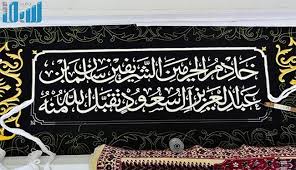 خادم الحرمين الشريفين سلمان بن
عبدالعزيز آل سعود تقبل الله منه